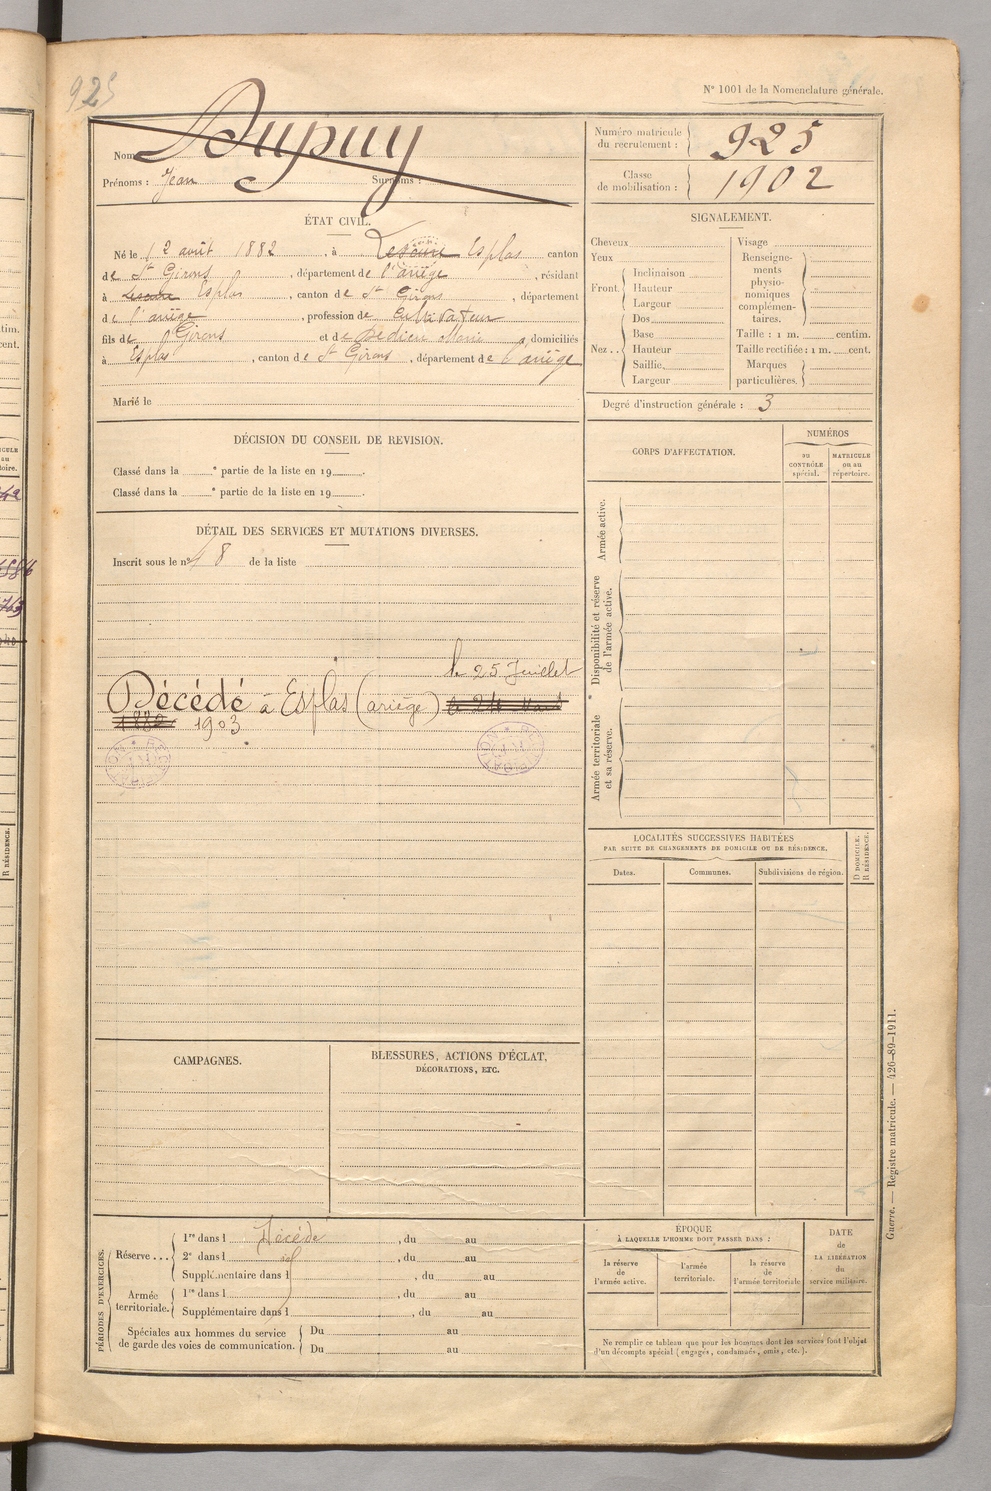 925
N° 1001 de la Nomenclature générale.
Nom Dupuy
Prénoms : Jean Surnoms :
Numéro matricule du recrutement : 925
Classe de mobilisation : 1902
ÉTAT CIVIL.
Né le 12 août 1882, à Lescure Esplas canton
de St Girons, département de l'ariège, résidant
à Lescure Esplas, canton de St Girons, département
de l'ariège, profession de Cultivateur
fils de Girons et de Marie domiciliés
à Esplas, canton de St Girons, département de l'ariège
Marié le
SIGNALEMENT.
Cheveux
Yeux
Front. Inclinaison
Hauteur
Largeur
Nez.. Dos
Base
Hauteur
Saillie
Largeur
Visage
Renseigne-
ments
physio-
nomiques
complémen-
taires.
Taille : 1 m. centim.
Taille rectifiée : 1 m. cent.
Marques
particulières.
Degré d'instruction générale : 3
DÉCISION DU CONSEIL DE REVISION.
Classé dans la e partie de la liste en 19 .
Classé dans la e partie de la liste en 19 .
CORPS D'AFFECTATION.
NUMÉROS
au
CONTRÔLE
spécial.
MATRICULE
ou au
répertoire.
Armée active.
Disponibilité et réserve
de l'armée active.
Armée territoriale
et sa réserve.
DÉTAIL DES SERVICES ET MUTATIONS DIVERSES.
Inscrit sous le n° 8 de la liste
le 25 Juillet
Décédé à Esplas (ariège) le 24 Mars
1882 1903
LOCALITÉS SUCCESSIVES HABITÉES
PAR SUITE DE CHANGEMENTS DE DOMICILE OU DE RÉSIDENCE.
Dates.
Communes.
Subdivisions de région.
D DOMICILE.
R RÉSIDENCE.
CAMPAGNES.
BLESSURES, ACTIONS D'ÉCLAT,
DÉCORATIONS, ETC.
PÉRIODES D'EXERCICES.
Réserve ... 1re dans l Décédé, du au
2e dans l , du au
Supplémentaire dans l , du au
Armée
territoriale. 1re dans l , du au
Supplémentaire dans l , du au
Spéciales aux hommes du service
de garde des voies de communication. Du au
Du au
ÉPOQUE
À LAQUELLE L'HOMME DOIT PASSER DANS :
la réserve
de
l'armée active.
l'armée
territoriale.
la réserve
de
l'armée territoriale
DATE
de
LA LIBÉRATION
du
service militaire.
Ne remplir ce tableau que pour les hommes dont les services font l'objet
d'un décompte spécial (engagés, condamnés, omis, etc.).
Guerre. — Registre matricule. — 426-89-1911.